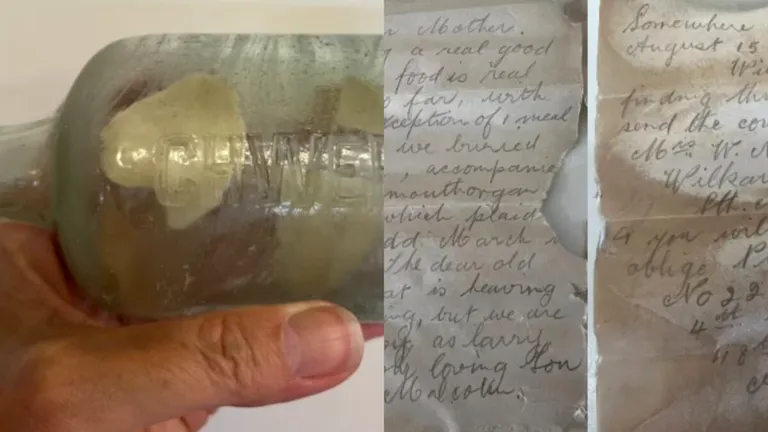 Mother.
a real good
food is real
far, with
ception of 1 meal
we buried
, accompanie
mouthorgan
which plaid
dd. March
The dear old
at is heaving
ng, but we are
as larry
loving Son
Malcolm.
Somewhere
August 15
Wil
finding th
send the co
Mrs W.
Wilkaw
& you wil
oblige
No 22
4